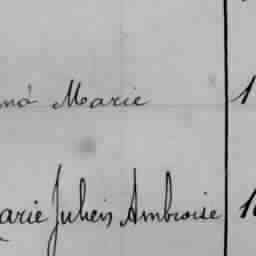 Marie 1
arie Julien Ambroise 1